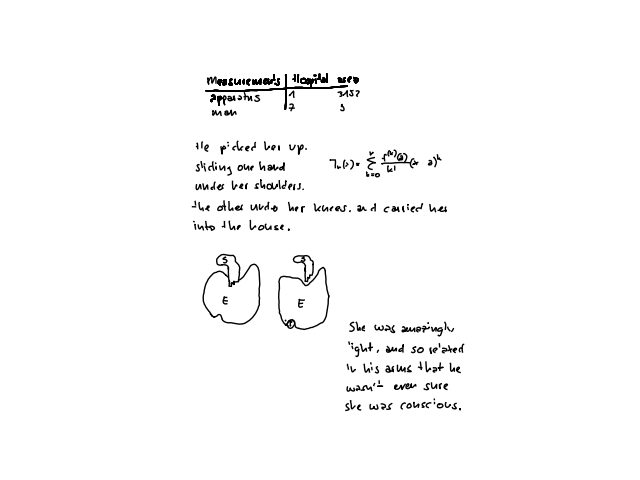 Measurements Hospital used
apparatus 1 3152
man 7 3
He picked her up.
sliding one hand
under her shoulders.
the other under her knees. and carried her
into the house.
S S
E E
She was amazingly
light, and so related
in his arms that he
wasn't even sure
she was conscious.